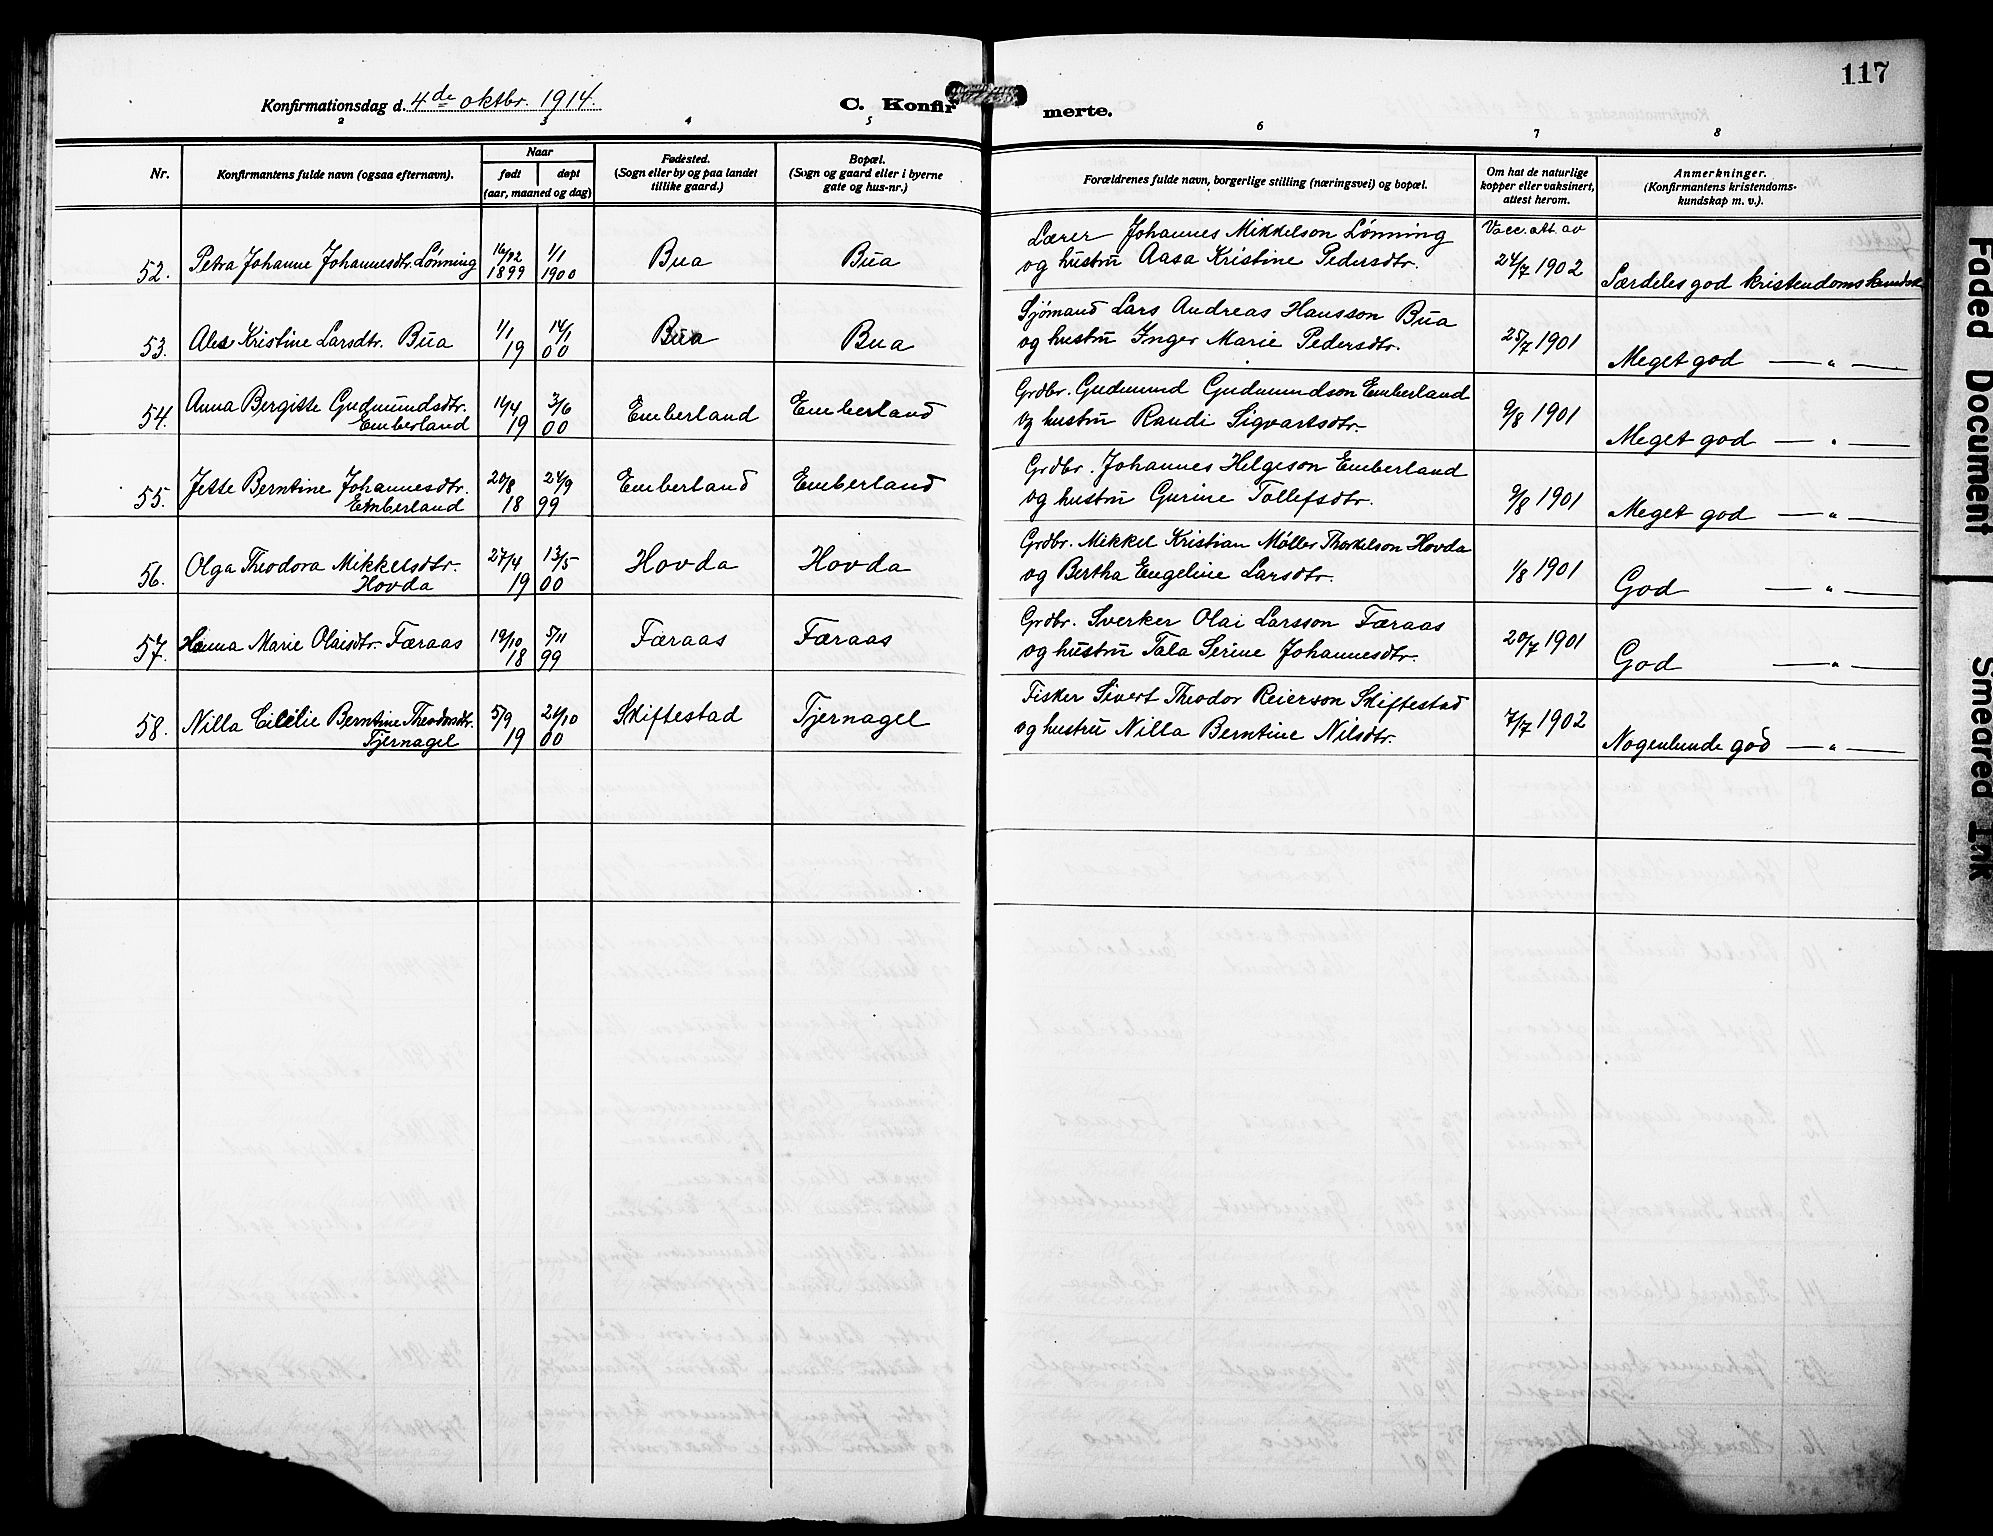 117
Konfirmationsdag d. 4de oktbr. 1914.
C. Konfirmerte.
2 3 4 5 6 7 8
Nr.
Konfirmantens fulde navn (ogsaa efternavn).
Naar
født
døpt
(aar, maaned og dag)
Fødested.
(Sogn eller by og paa landet
tillike gaard.)
Bopæl.
(Sogn og gaard eller i byerne
gate og hus-nr.)
Forældrenes fulde navn, borgerlige stilling (næringsvei) og bopæl.
Om hat de naturlige
kopper eller vaksinert,
attest herom.
Anmerkninger.
(Konfirmantens kristendoms-
kundskap m. v.).
52. Petra Johanne Johannesdtr. Lønning 16/12 1899 1/1 1900 Bua Bua
Lærer Johannes Mikkelson Lønning
og hustru Aasa Kristine Pedersdtr.
Vacc. att. av
24/7 1902 Særdeles god kristendomskundsk
53. Alea Kristine Larsdtr. Bua 1/1 14/1 19 00 Bua Bua
Sjømand Lars Andreas Hansson Bua
og hustru Inger Marie Pedersdtr.
25/7 1901 Meget god — " —
54. Anna Bergitte Gudmundsdtr.
Emberland 11/4 3/6 19 00 Emberland Emberland
Grdbr. Gudmund Gudmundson Emberland
og hustru Randi Sigvartsdtr.
9/8 1901 Meget god — " —
55. Jette Berntine Johannesdtr.
Emberland 20/8 24/9 18 99 Emberland Emberland
Grdbr. Johannes Helgeson Emberland
og hustru Gurine Tollefsdtr.
9/8 1901 Meget god — " —
56. Olga Theodora Mikkelsdtr.
Hovda 27/4 13/5 19 00 Hovda Hovda
Grdbr. Mikkel Kristian Møller Thorkelson Hovda
og Bertha Engeline Larsdtr.
1/8 1901 God — " —
57. Hanna Marie Olaisdtr. Færaas 19/10 5/11 18 99 Færaas Færaas
Grdbr. Sverker Olai Larsson Færaas
og hustru Tala Serine Johannesdtr.
20/7 1901 God — " —
58. Nilla Cicilie Berntine Theodorsdtr.
Tjernagel 5/9 20/10 19 00 Skiftestad Tjernagel
Fisker Sivert Theodor Reierson Skiftestad
og hustru Nilla Berntine Nilsdtr.
7/7 1902 Nogenlunde god — " —
Faded Document
Smeared Ink